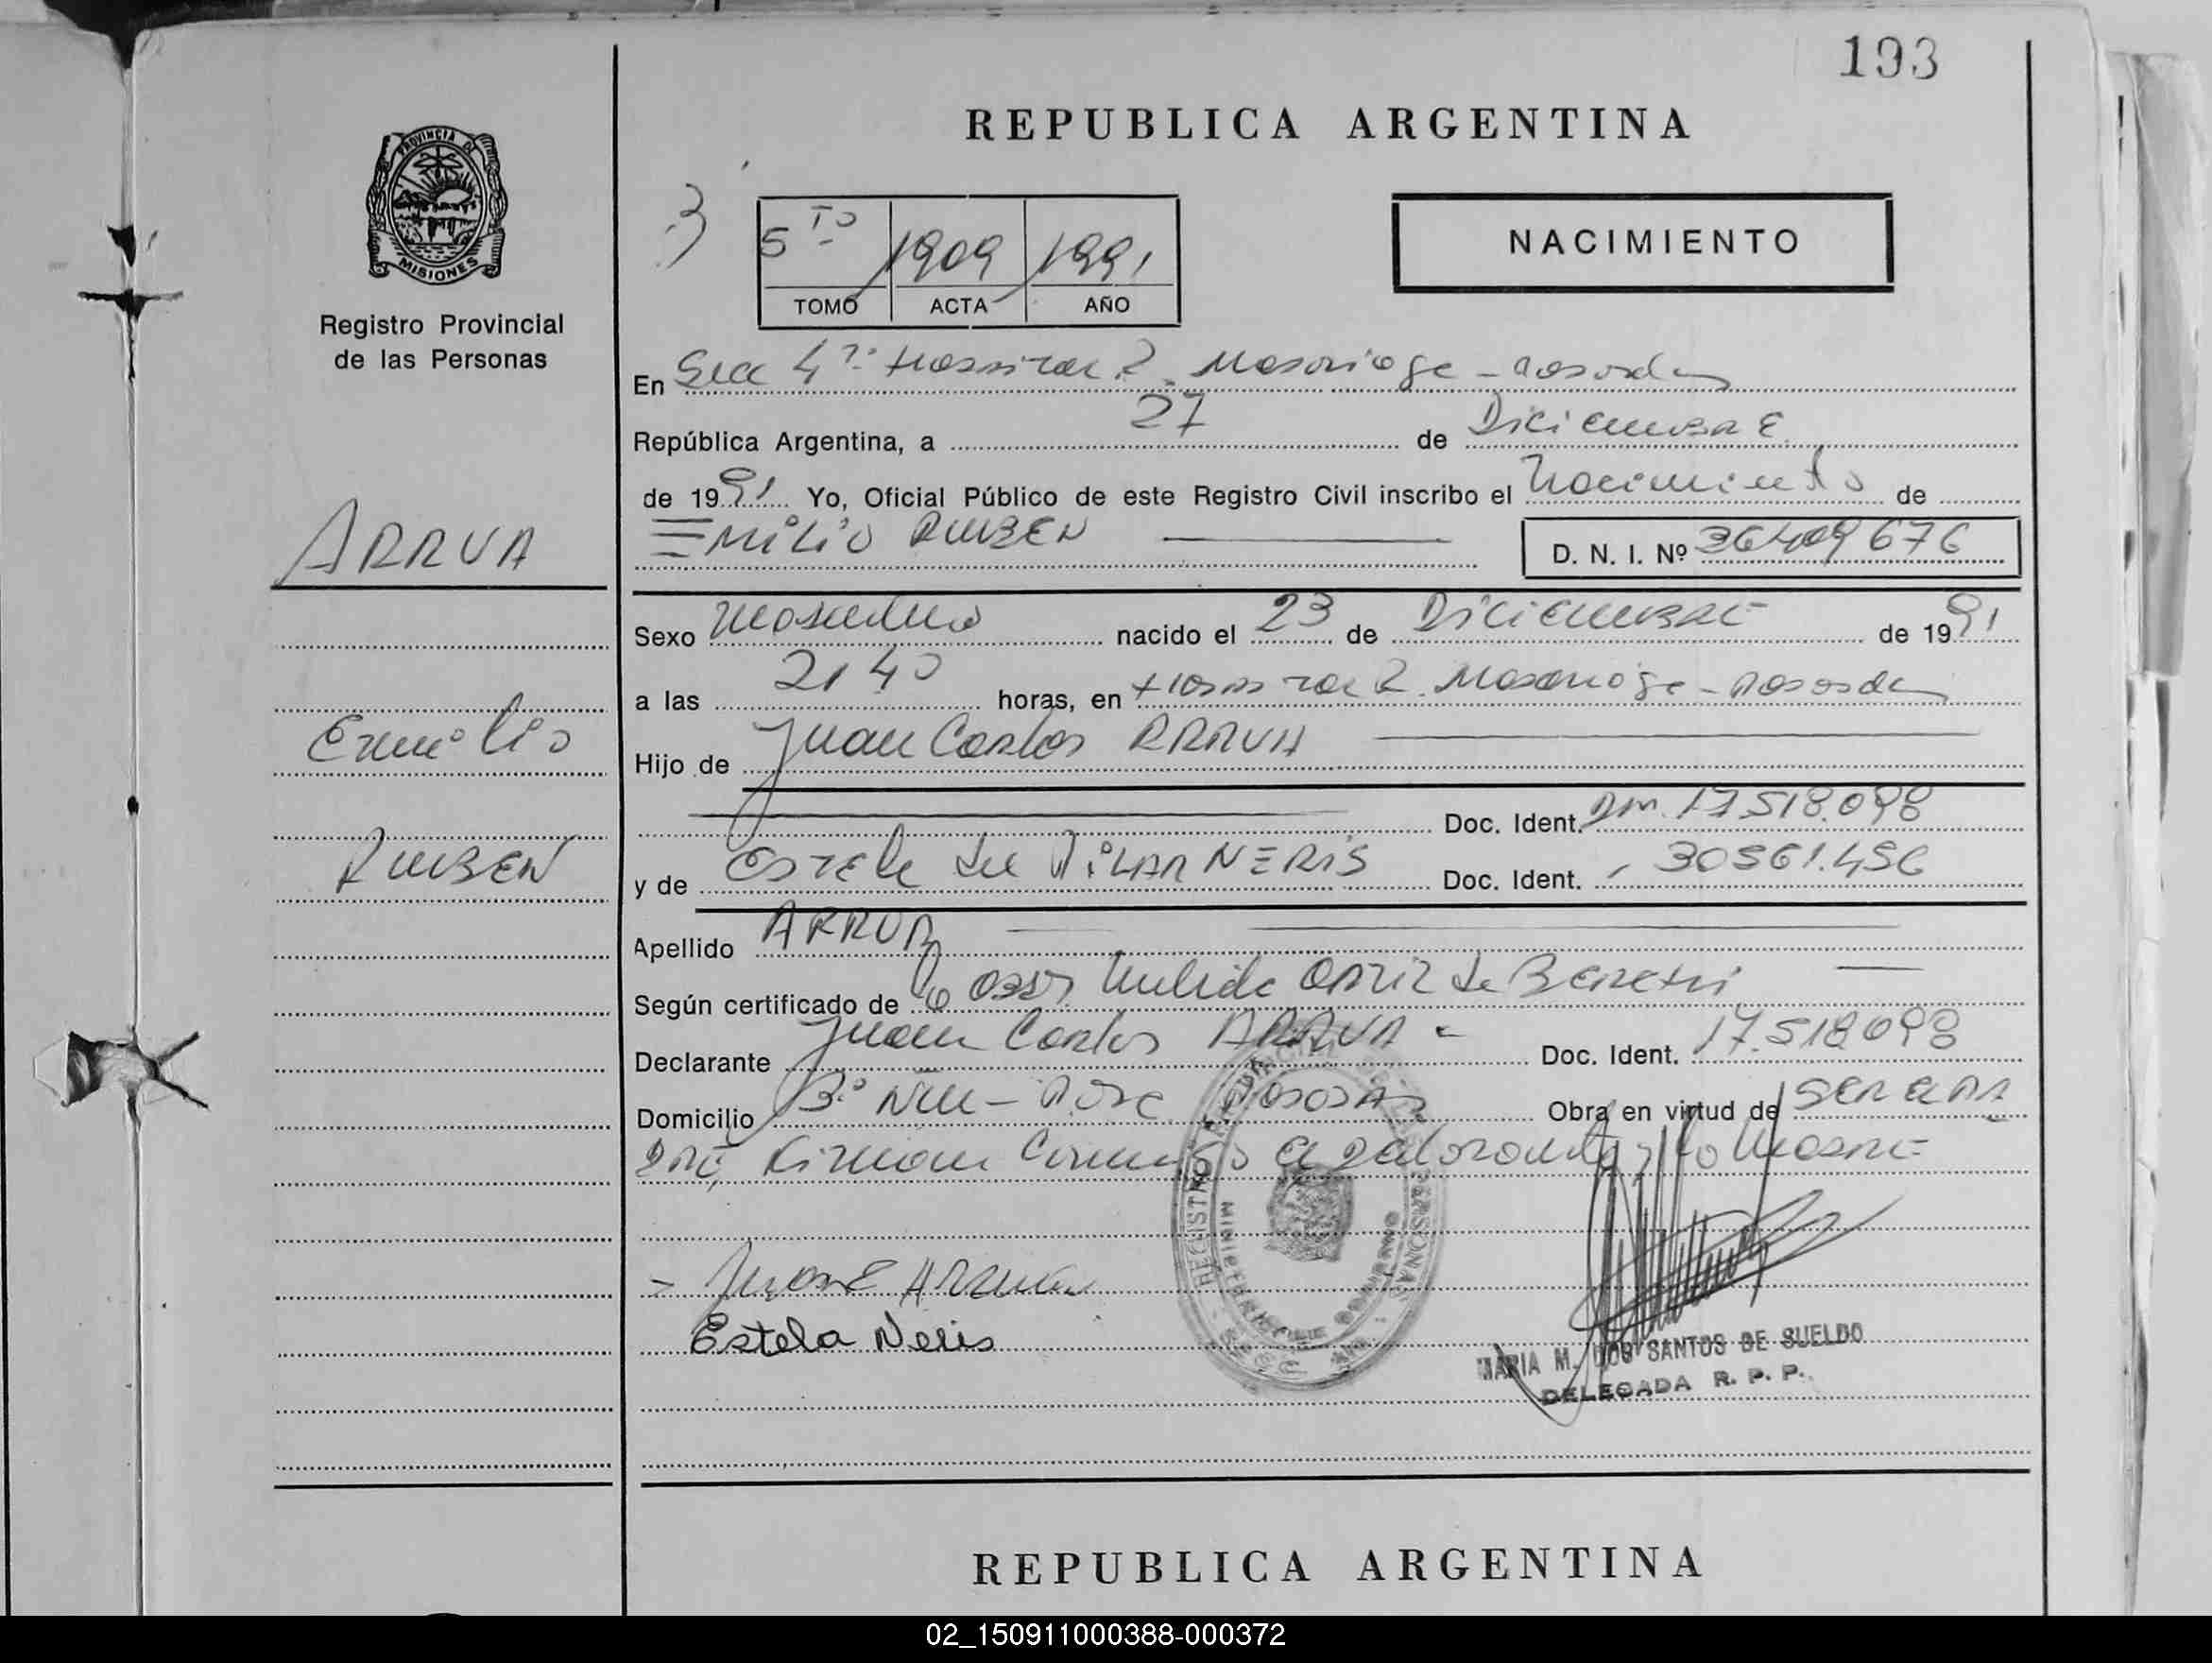 193
REPUBLICA ARGENTINA
PROVINCIA DE
MISIONES
Registro Provincial
de las Personas
5to
1909
1991
TOMO
ACTA
AÑO
NACIMIENTO
En Secc 4ª Hospital R. Madariaga - Posadas
República Argentina, a 27 de Diciembre
de 1991 Yo, Oficial Público de este Registro Civil inscribo el Nacimiento de
EMiLiO RUBEN
D. N. I. Nº 36409676
ARRUA
Emilio
RUBEN
Sexo Masculino nacido el 23 de Diciembre de 1991
a las 21 40 horas, en Hospital R. Madariaga - Posadas
Hijo de Juan Carlos ARRUA
Doc. Ident. DNI. 17.518.098
y de Estela del PiLAR NERIS Doc. Ident. 30561.456
Apellido ARRUA
Según certificado de Ortiz de
Declarante Juan Carlos ARRUA - Doc. Ident. 17.518098
Domicilio Bº Posadas Obra en virtud de ser el pa
dre, Firman conmigo el declarante y la Madre
Estela Neris
MARIA M. DOS SANTOS DE SUELDO
DELEGADA R. P. P.
REPUBLICA ARGENTINA
02_150911000388-000372